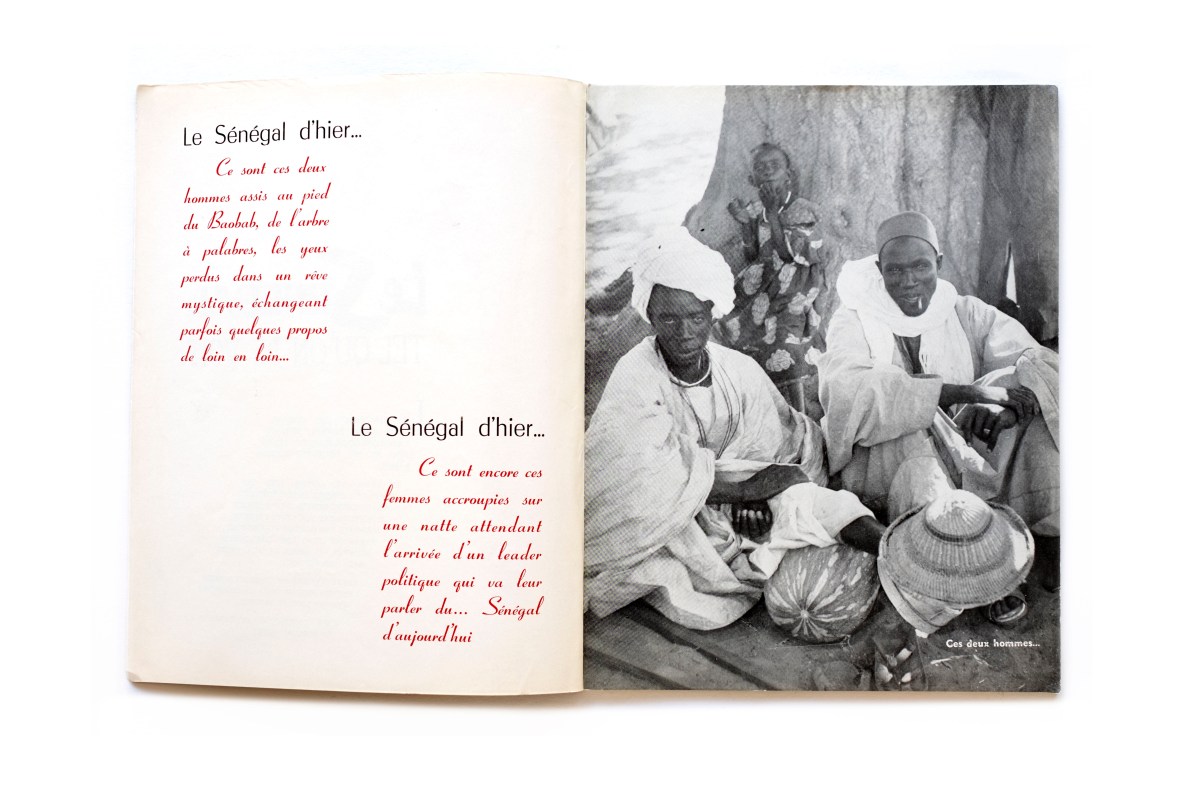 Le Sénégal d'hier...
Ce sont ces deux
hommes assis au pied
du Baobab, de l'arbre
à palabres, les yeux
perdus dans un rêve
mystique, échangeant
parfois quelques propos
de loin en loin...
Le Sénégal d'hier...
Ce sont encore ces
femmes accroupies sur
une natte attendant
l'arrivée d'un leader
politique qui va leur
parler du... Sénégal
d'aujourd'hui
Ces deux hommes...